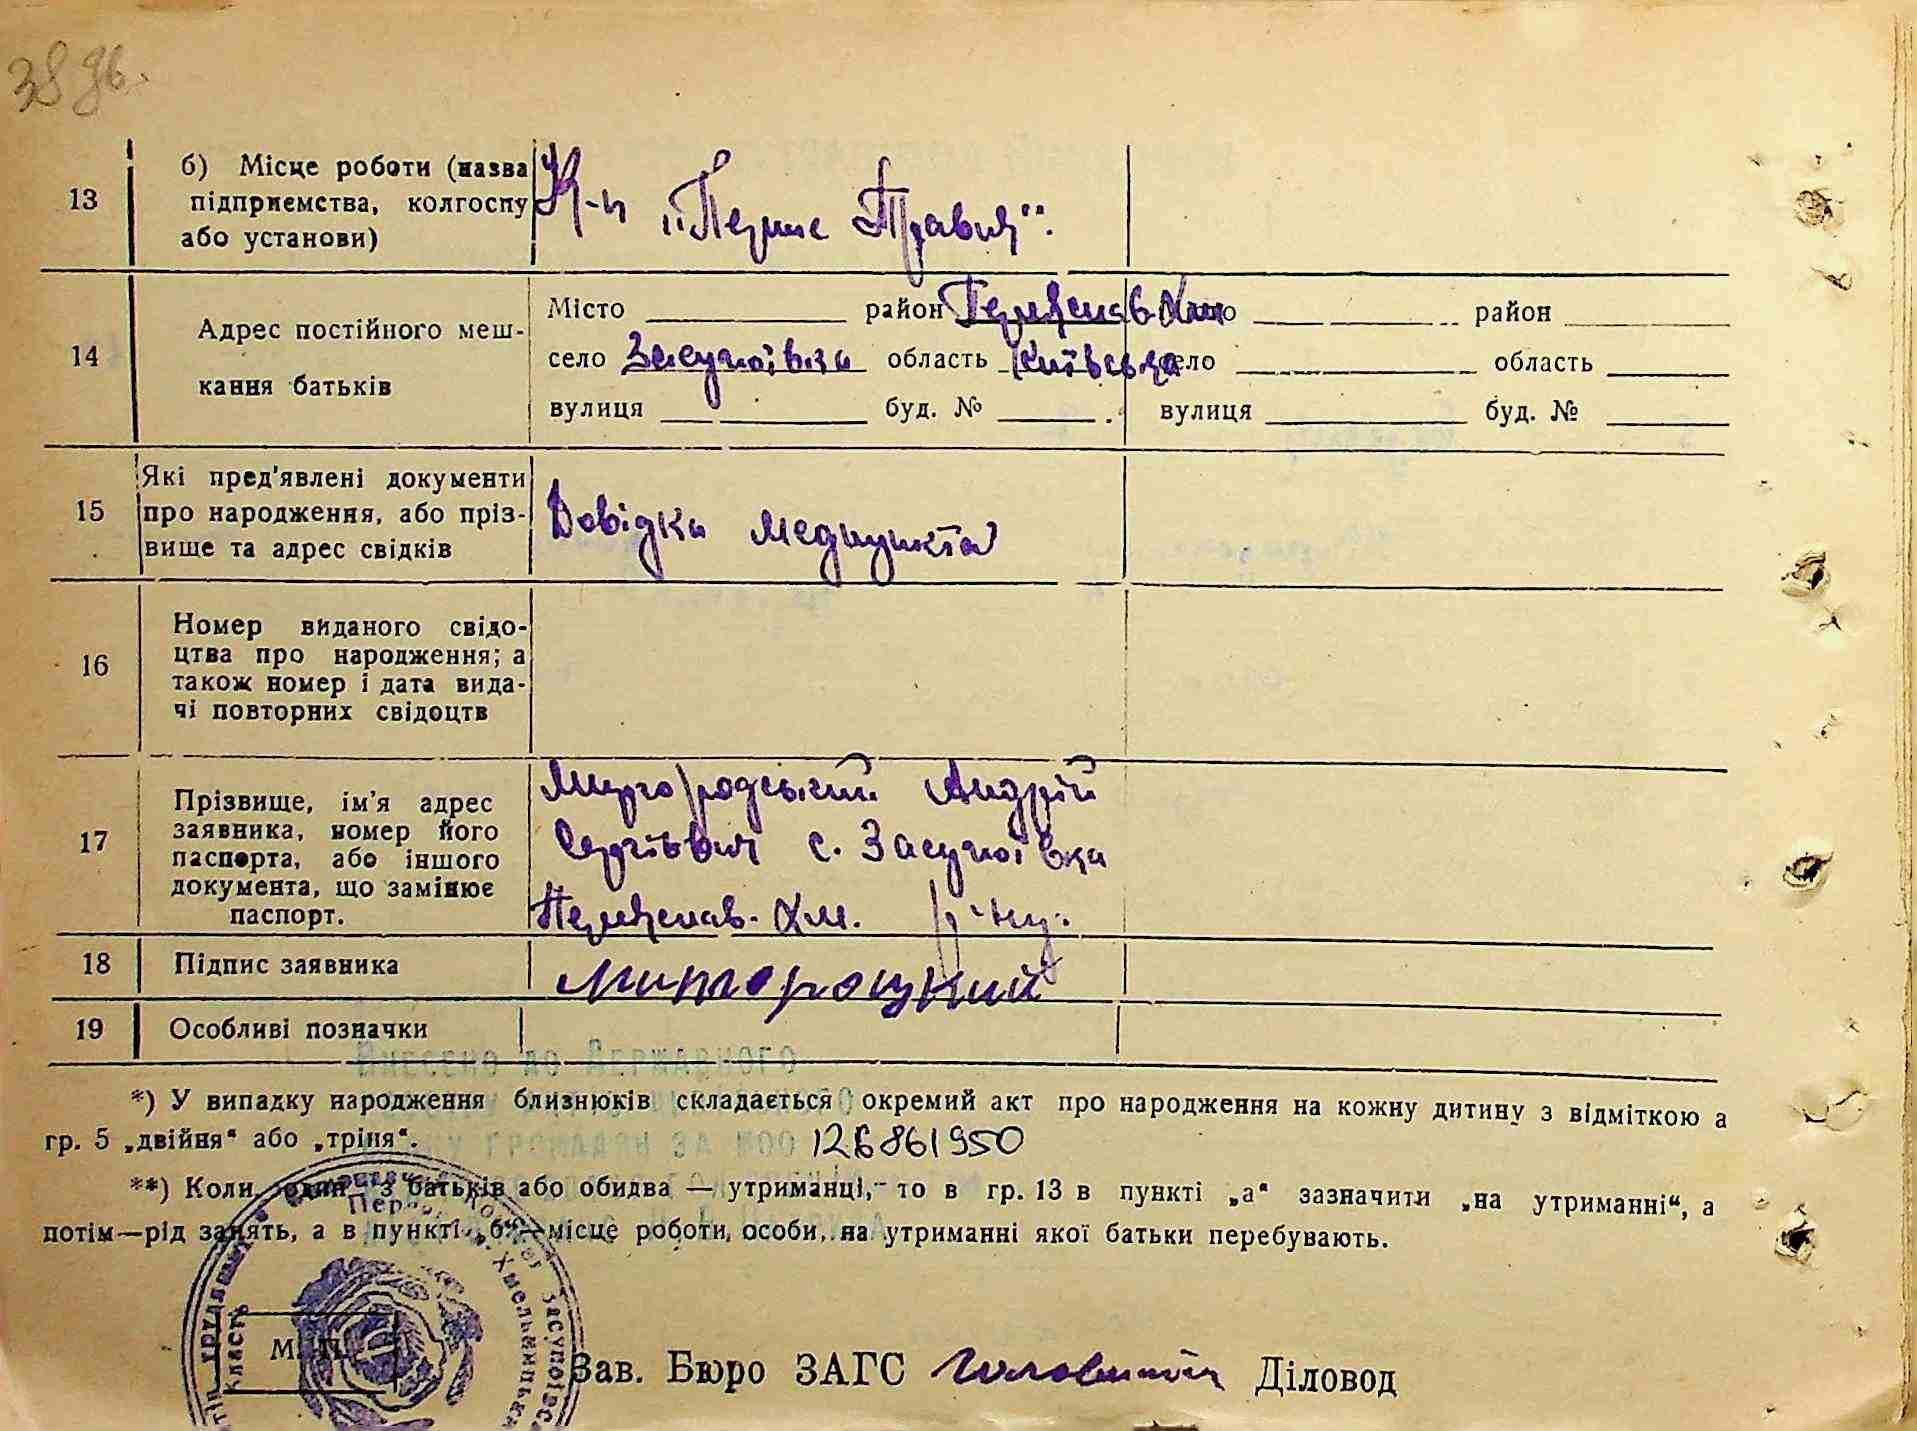 38 зв.
13
б) Місце роботи (назва
підприємства, колгоспу
або установи)
К-п „Перше Травня".
14
Адрес постійного меш-
кання батьків
Місто район Переяслав-Хм
село Засупоївка область Київська
вулиця буд. №
район
село область
вулиця буд. №
15
Які пред'явлені документи
про народження, або пріз-
вище та адрес свідків
Довідка медпункта
16
Номер виданого свідо-
цтва про народження; а
також номер і дата вида-
чі повторних свідоцтв
17
Прізвище, ім'я адрес
заявника, номер його
паспорта, або іншого
документа, що замінює
паспорт.
Миргородський Андрій
Сергійович с. Засупоївка
Переяслав-Хм. р-ну.
18
Підпис заявника
19
Особливі позначки
Внесено до Державного
*) У випадку народження близнюків складається окремий акт про народження на кожну дитину з відміткою а
гр. 5 „двійня" або „тріпя".
громадян за №00 126861950
**) Коли один з батьків або обидва — утриманці, то в гр. 13 в пункті „а" зазначити „на утриманні", а
потім—рід занять, а в пункті „б"—місце роботи особи, на утриманні якої батьки перебувають.
М. П.
Зав. Бюро ЗАГС Діловод